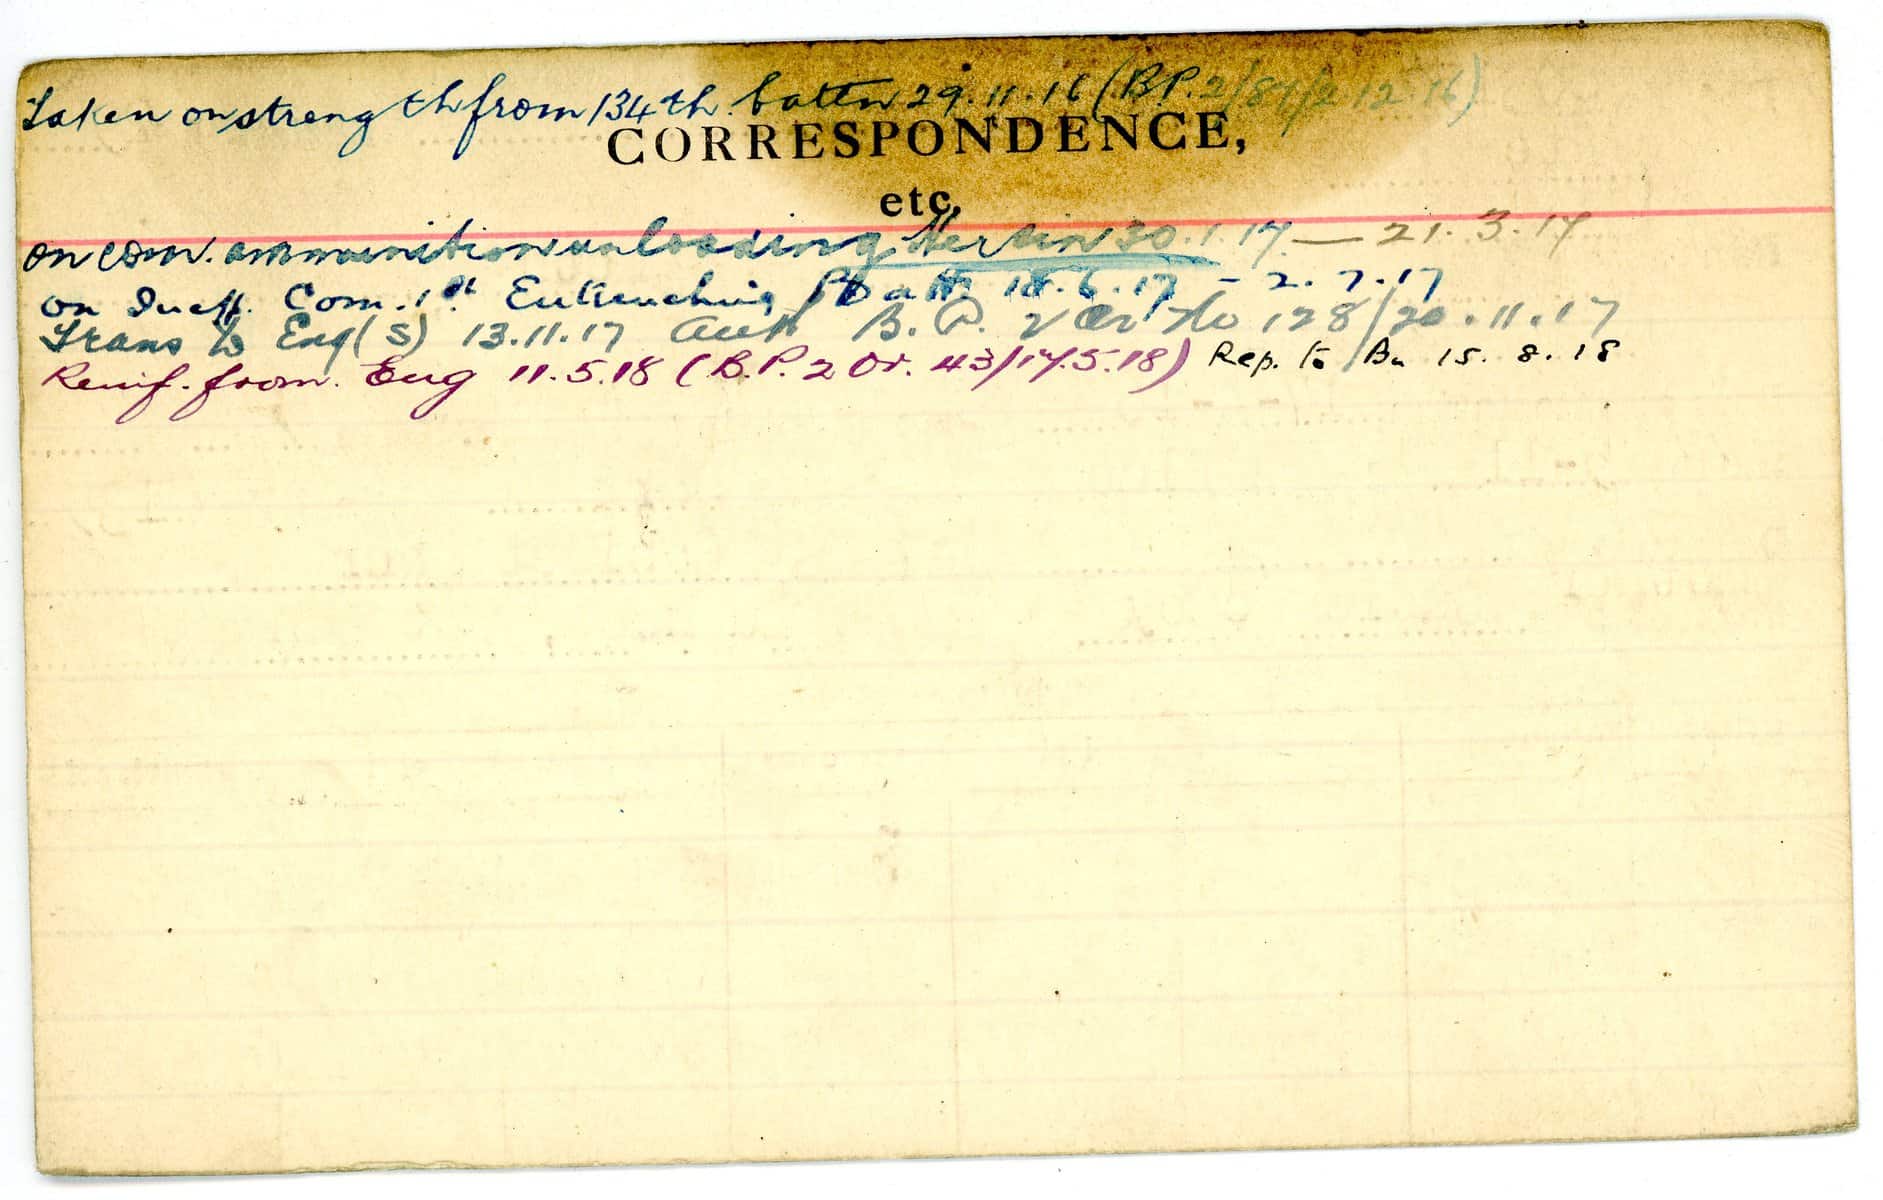 Taken on strength from 134th battn 29.11.16 (B.P.2/87/2.12.16)
CORRESPONDENCE,
etc.
on com. ammunition unloading Hersin 30.1.17 — 21.3.17
on Ineff. Com. 1st Entrenching Batt 18.6.17 - 2.7.17
Trans to Eng(s) 13.11.17 Auth B.P. 2 Or No 128/20.11.17
Reinf. from. Eng 11.5.18 (B.P. 2 Or. 43/17.5.18) Rep. to Bn 15.8.18